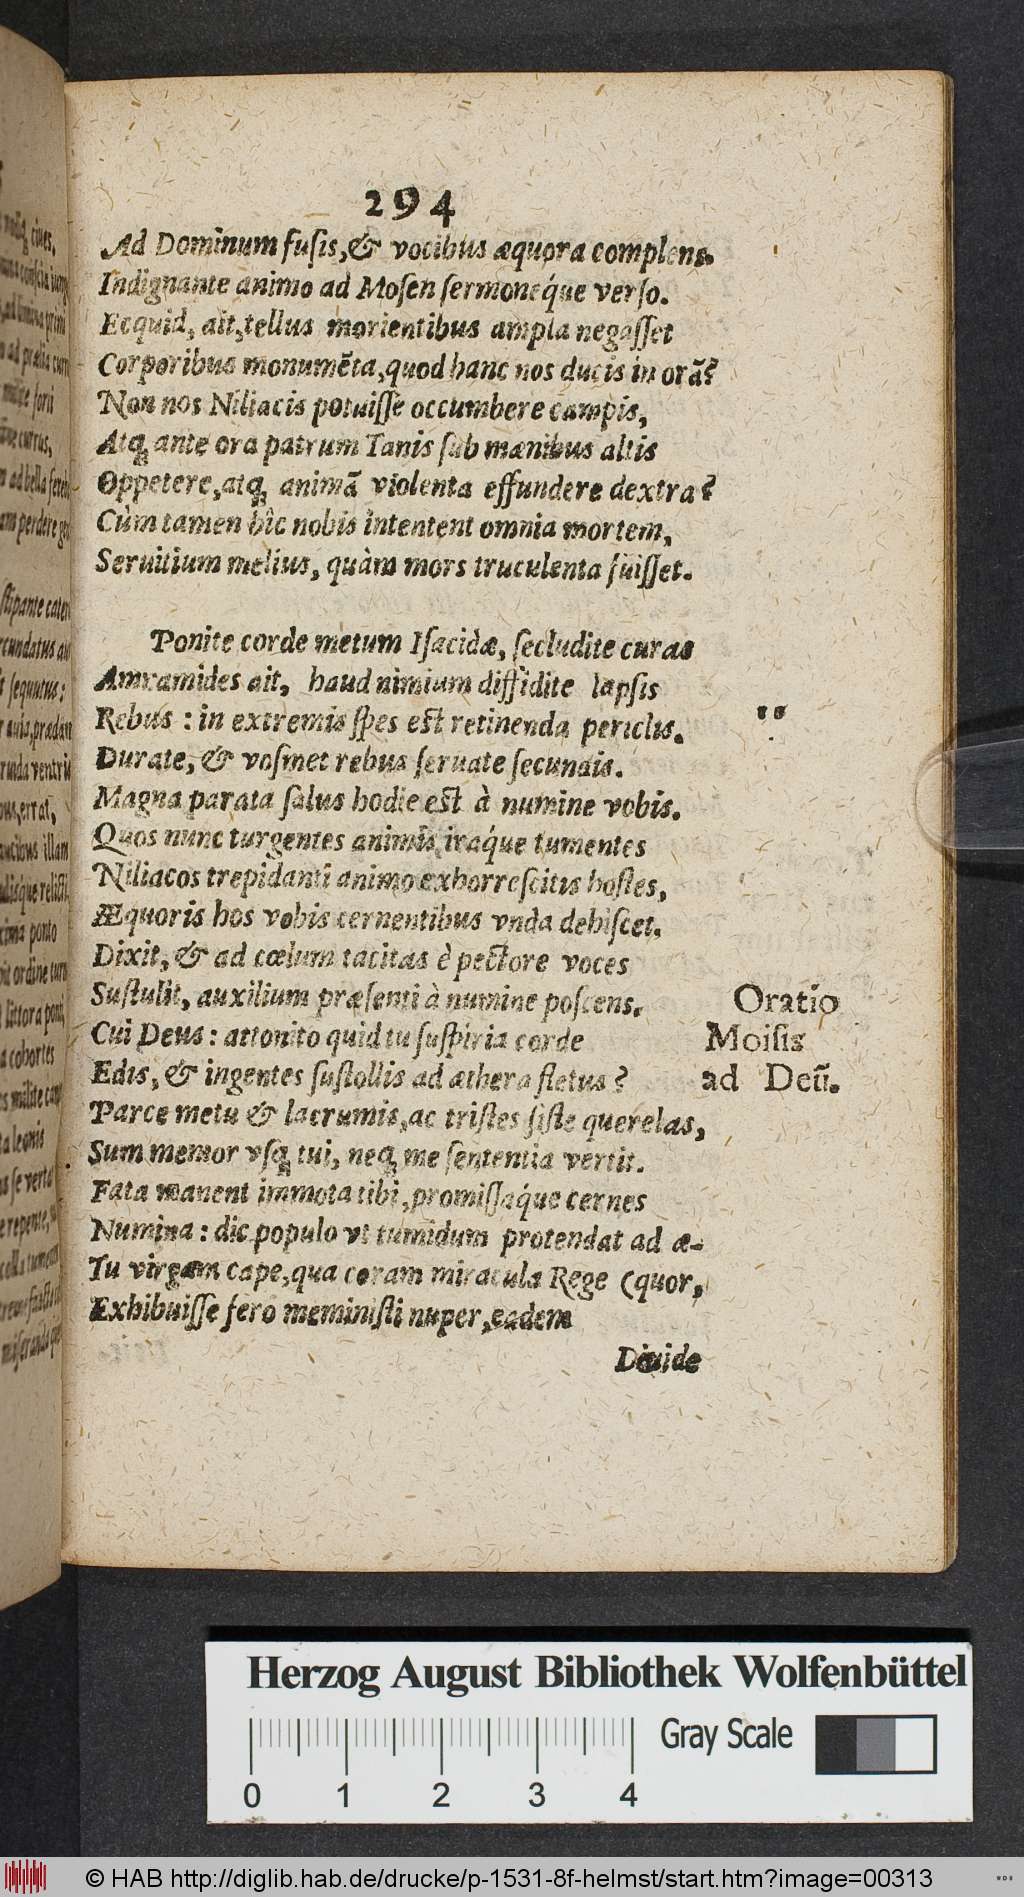 294
Ad Dominum fuſis, & vocibus æquora complens.
Indignante animo ad Moſen ſermoneq́ue verſo.
Ecquid, ait, tellus morientibus ampla negaſſet
Corporibus monumēta, quod hanc nos ducis in orā?
Non nos Niliacis potuiſſe occumbere campis,
Atq; ante ora patrum Tanis ſub mœnibus altis
Oppetere, atq; animā violenta effundere dextra?
Cùm tamen hîc nobis intentent omnia mortem,
Seruitium melius, quàm mors truculenta fuiſſet.
Ponite corde metum Iſacidæ, ſecludite curas
Amramides ait, haud nimium diffidite lapſis
Rebus: in extremis ſpes est retinenda periclis.
Durate, & voſmet rebus ſeruate ſecundis.
Magna parata ſalus hodie est à numine vobis.
Quos nunc turgentes animis, iraq́ue tumentes
Niliacos trepidanti animo exhorreſcitis hoſtes,
Æquoris hos vobis cernentibus vnda dehiſcet.
Dixit, & ad cœlum tacitas è pectore voces
Suſtulit, auxilium præſenti à numine poſcens.
Oratio
Cui Deus: attonito quid tu ſuſpiria corde
Moiſis
Edis, & ingentes ſuſtollis ad æthera fletus?
ad Deū.
Parce metu & lacrumis, ac triſtes ſiſte querelas,
Sum memor vſq; tui, neq; me ſententia vertit.
Fata manent immota tibi, promiſſaq́ue cernes
Numina: dic populo vt tumidum protendat ad æ-
Tu virgam cape, qua coram miracula Rege (quor,
Exhibuiſſe fero meminiſti nuper, eadem
Diuide
Herzog August Bibliothek Wolfenbüttel
Gray Scale
0 1 2 3 4
© HAB http://diglib.hab.de/drucke/p-1531-8f-helmst/start.htm?image=00313